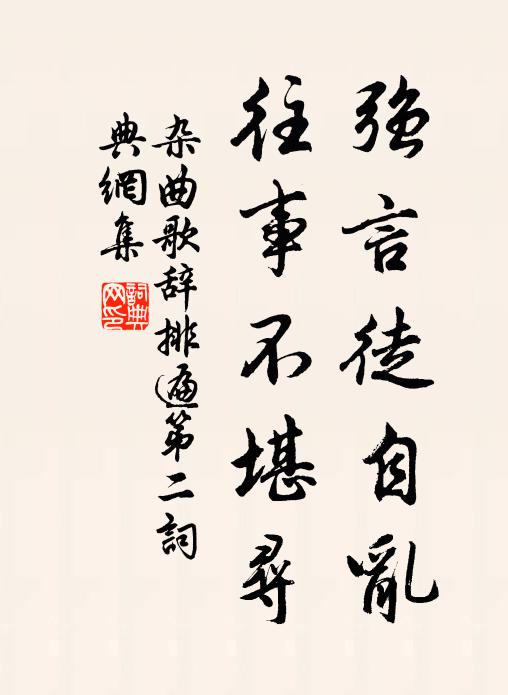 强言徒自亂
往事不堪尋
杂曲歌辞排遍第二詞
典網集
詞典网印